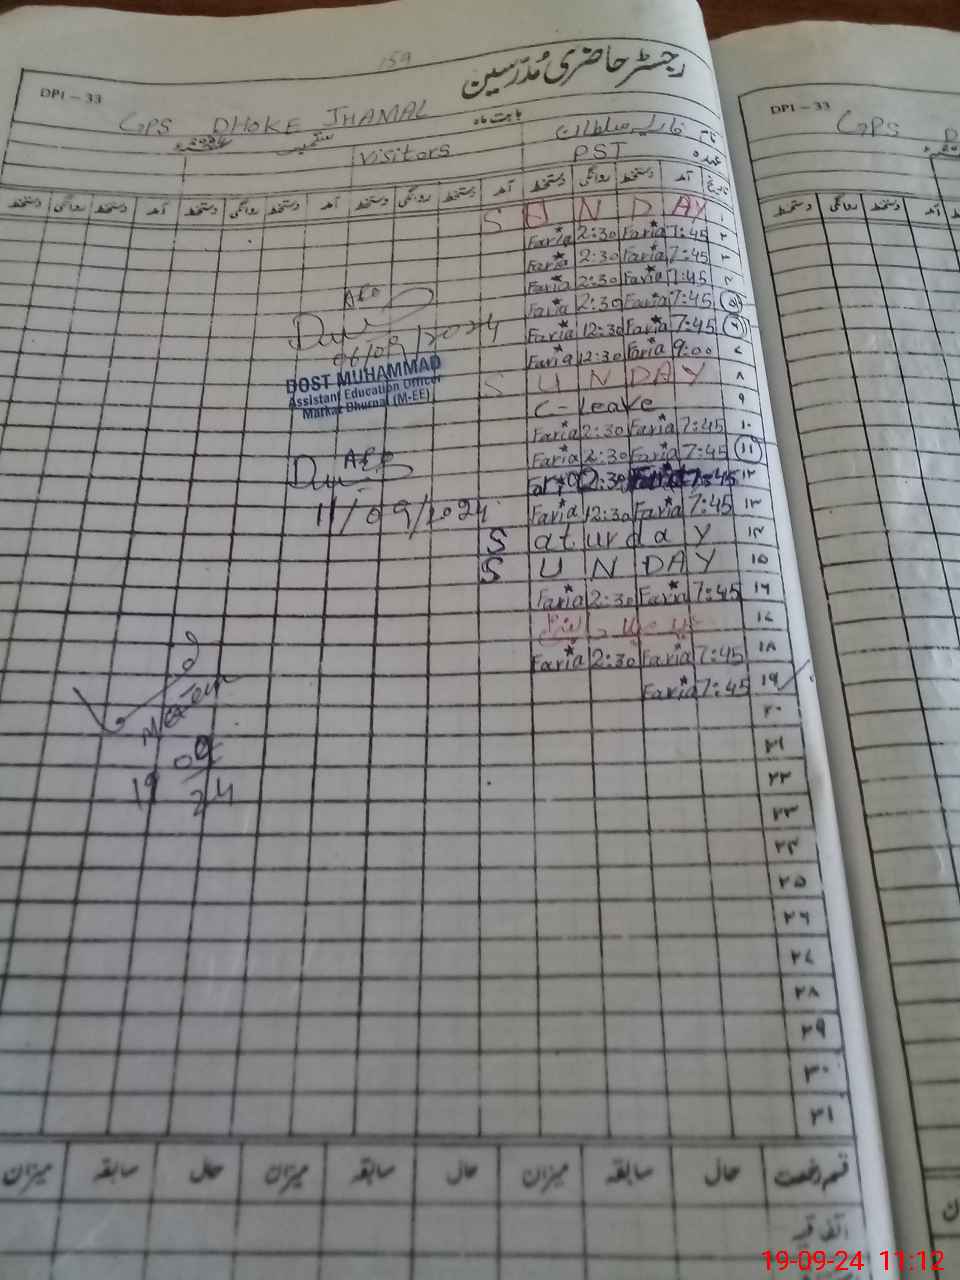 159
رجسٹر حاضری مُدرّسین
DPI – 33
GPS DHOKE JHAMAL
بابت ماہ ستمبر
نام فاریہ سلطان
Visitors
عہدہ PST
تاریخ آمد دستخط روانگی دستخط آمد دستخط روانگی دستخط آمد دستخط روانگی دستخط
۱ SUNDAY
۲ 7:45 Faria 2:30 Faria
۳ 7:45 Faria 2:30 Faria
۴ 7:45 Faria 2:30 Faria
۵ 7:45 Faria 2:30 Faria
۶ 7:45 Faria 12:30 Faria
۷ 9:00 Faria 12:30 Faria
۸ SUNDAY
۹ C-leave
۱۰ 7:45 Faria 2:30 Faria
۱۱ 7:45 Faria 2:30 Faria
۱۲ 7:45 Faria 2:30
۱۳ 7:45 Faria 12:30 Faria
۱۴ Saturday
۱۵ SUNDAY
۱۶ 7:45 Faria 2:30 Faria
۱۷
۱۸ 7:45 Faria 2:30 Faria
۱۹ 7:45 Faria
۲۰
۲۱
۲۲
۲۳
۲۴
۲۵
۲۶
۲۷
۲۸
۲۹
۳۰
۳۱
AEO
06/09/2024
DOST MUHAMMAD
Assistant Education Officer
Markaz Dhurnal (M-EE)
AEO
11/09/2024
19 09
24
قسم رخصت حال سابقہ میزان حال سابقہ میزان حال سابقہ میزان
اتفاقیہ
DPI – 33
GPS
دستخط روانگی دستخط آمد
19-09-24 11:12